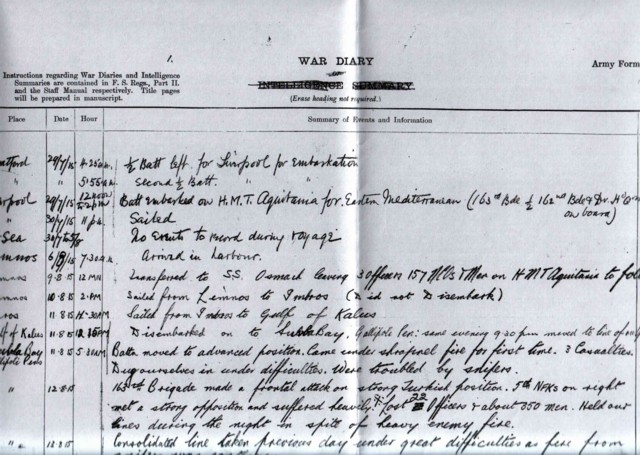 1.
WAR DIARY
or
INTELLIGENCE SUMMARY.
(Erase heading not required.)
Army Form
Instructions regarding War Diaries and Intelligence
Summaries are contained in F. S. Regs., Part II.
and the Staff Manual respectively. Title pages
will be prepared in manuscript.
Place Date Hour Summary of Events and Information
atford 29/7/15 4.25 a.m. ½ Batt left for Liverpool for Embarkation
" " 5.55 a.m. Second ½ Batt. " "
erpool 29/7/15 12 noon Batt embarked on H.M.T. Aquitania for Eastern Mediterranean (163rd Bde ½ 162nd Bde & Dv. Hd
on board)
" 30/7/15 11 p.m. Sailed
Sea No Events to record during voyage
mnos 6/8/15 7.30 a.m. Arrived in harbour.
mnos 9.8.15 12 MN Transferred to S.S. Osmaeh leaving 3 officers 157 NCOs & Men on H.M.T Aquitania to foll
mnos 10.8.15 2 PM Sailed from Lemnos to Imbros (Did not Disembark)
ros 11.8.15 Sailed from Imbros to Gulf of Kalees
lf of Kalees 11.8.15 Disembarked on to Suvla Bay, Gallipoli Pen: same evening 9.30 pm moved to line of
Suvla Bay 11.8.15 5.30 AM Battn moved to advanced position. Came under shrapnel fire for first time. 3 Casualties.
llipoli Pens Dug ourselves in under difficulties. Were troubled by snipers.
" 12.8.15 163rd Brigade made a frontal attack on strong Turkish position. 5th Nfks on right
met a strong opposition and suffered heavily. lost 22 Officers & about 350 men. Held our
lines during the night in spite of heavy enemy fire.
" 13.8.15 Consolidated line taken previous day under great difficulties as fire from